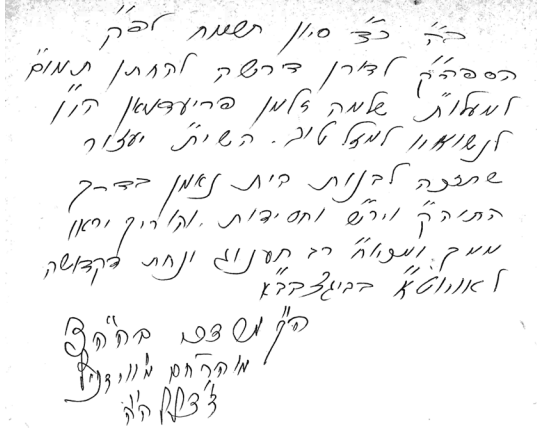 ב״ה כ״ד סיון תשמח לפ״ק
הספה״ק לדארן דרשה להחתן תמוס״
למעלות שלמה זלמן פריעדמאן הי״ו
לנשואיו למזל טוב. השי״ת יעזור
שתזכה לבנות בית נאמן בדרך
התוה״ק ויר״ש וחסידות, והוריך יראו
ממך ומביאה רב תענוג ונחת דקדושה
לאויוט״א בביגצבב״א
הק׳